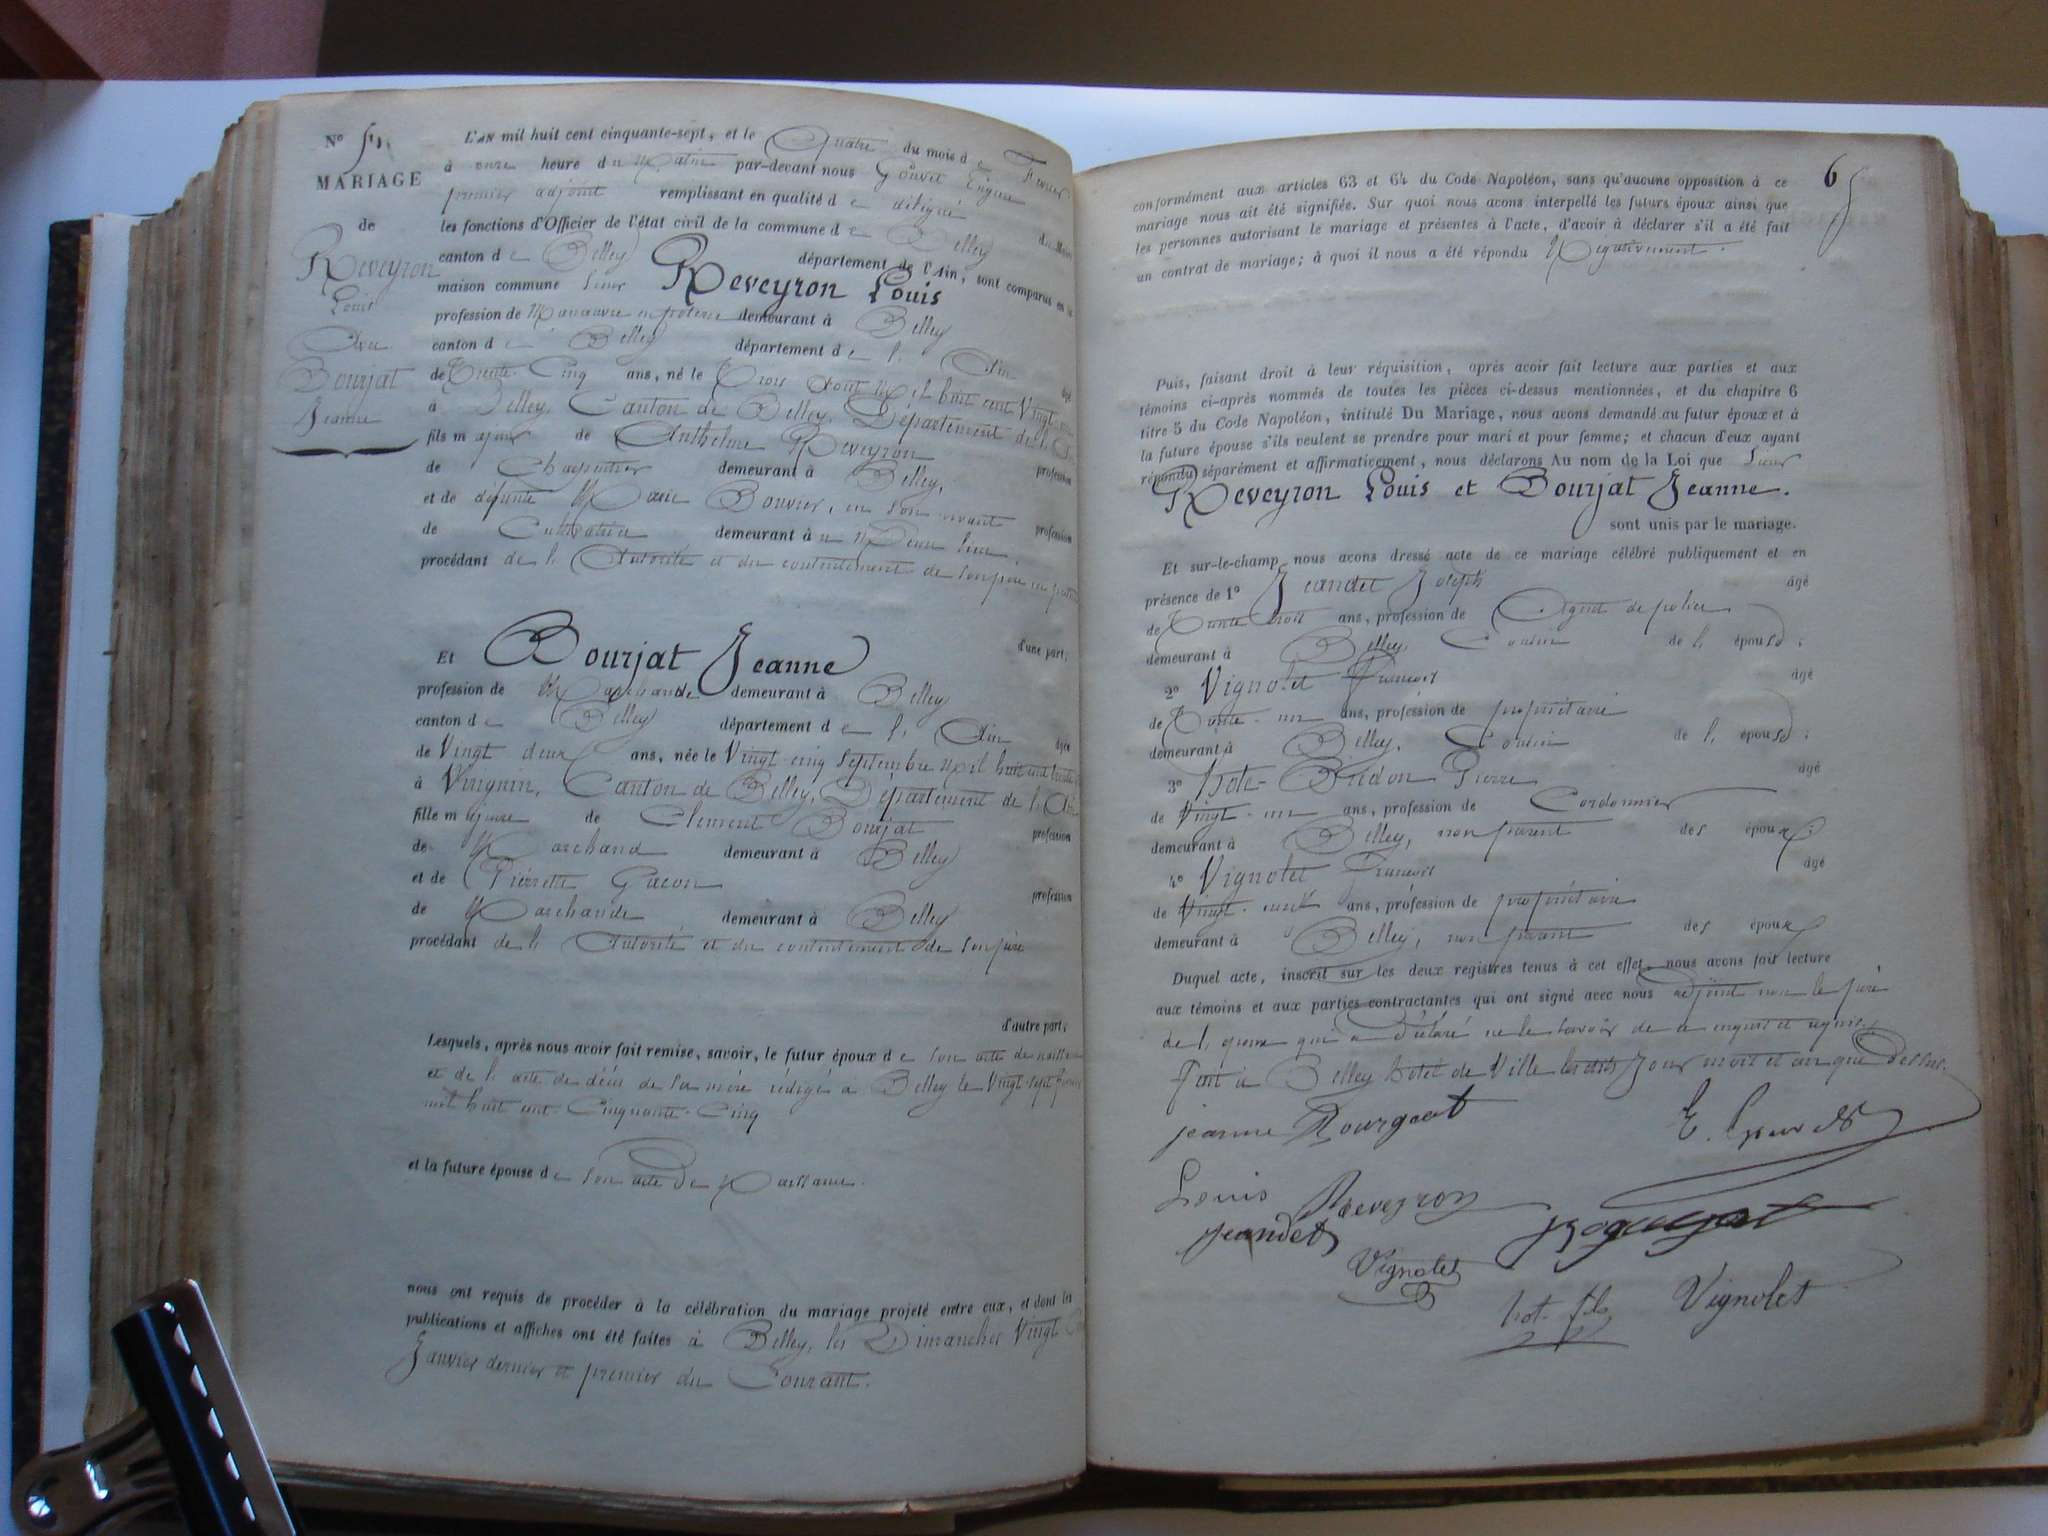 N° 5
MARIAGE
de
Reveyron
Louis
Avec
Bourjat
Jeanne
L'AN mil huit cent cinquante-sept, et le Quatre du mois de Février
à onze heure du Matin par-devant nous Eugène
premier adjoint remplissant en qualité de délégué du Maire
les fonctions d'Officier de l'état civil de la commune de Belley
canton de Belley département de l'Ain, sont comparus en la
maison commune Sieur Reveyron Louis
profession de demeurant à Belley
canton de Belley département de l' Ain âgé
de Trente Cinq ans, né le Trois Août Mil huit cent Vingt
à Belley, Canton de Belley, Département de l'
fils majeur de Anthelme Reveyron profession
de Charpentier demeurant à Belley,
et de défunte Marie Bouvier, en son vivant profession
de Cultivatrice demeurant à u Même lieu
procédant de l' Autorité et du contentement de son père
d'une part;
Et Bourjat Jeanne
profession de Marchande demeurant à Belley
canton de Belley département de l' Ain âgée
de Vingt deux ans, née le Vingt-cinq Septembre Mil huit cent trente
à Virignin, Canton de Belley, Département de l' Ain
fille majeure de Clément Bourjat profession
de Marchand demeurant à Belley
et de Pierrette Gacon profession
de Marchande demeurant à Belley
procédant de l' Autorité et du contentement de son père
d'autre part;
Lesquels, après nous avoir fait remise, savoir, le futur époux de son acte de naissance
et de l' acte de décès de sa mère rédigé à Belley le Vingt-sept
mil huit cent Cinquante-Cinq
et la future épouse de son acte de Naissance.
nous ont requis de procéder à la célébration du mariage projeté entre eux, et dont les
publications et affiches ont été faites à Belley, les Dimanches Vingt
Janvier dernier et premier du Courant.
6
conformément aux articles 63 et 64 du Code Napoléon, sans qu'aucune opposition à ce
mariage nous ait été signifiée. Sur quoi nous avons interpellé les futurs époux ainsi que
les personnes autorisant le mariage et présentes à l'acte, d'avoir à déclarer s'il a été fait
un contrat de mariage; à quoi il nous a été répondu Négativement.
Puis, faisant droit à leur réquisition, après avoir fait lecture aux parties et aux
témoins ci-après nommés de toutes les pièces ci-dessus mentionnées, et du chapitre 6
titre 5 du Code Napoléon, intitulé Du Mariage, nous avons demandé au futur époux et à
la future épouse s'ils veulent se prendre pour mari et pour femme; et chacun d'eux ayant
répondu séparément et affirmativement, nous déclarons Au nom de la Loi que Sieur
Reveyron Louis et Bourjat Jeanne.
sont unis par le mariage.
Et sur-le-champ nous avons dressé acte de ce mariage célébré publiquement et en
présence de 1° Jeandet Joseph âgé
de Trente trois ans, profession de Agent de police
demeurant à Belley, Cousin de l' épouse;
2° Vignolet François âgé
de Trente-un ans, profession de propriétaire
demeurant à Belley, Cousin de l' épouse;
3° Hote-Bridon Pierre âgé
de Vingt-un ans, profession de Cordonnier
demeurant à Belley, non parent des époux;
4° Vignolet François âgé
de Vingt-neuf ans, profession de propriétaire
demeurant à Belley, non parent des époux
Duquel acte, inscrit sur les deux registres tenus à cet effet, nous avons fait lecture
aux témoins et aux parties contractantes qui ont signé avec nous adjoint non le père
de l' époux qui a Déclaré ne le savoir de ce enquis et requis.
Fait à Belley hôtel de Ville les dits jour mois et an que dessus.
jeanne Bourgeat
Louis Reveyron
Jeandet
Vignolet
hot. fils
Vignolet